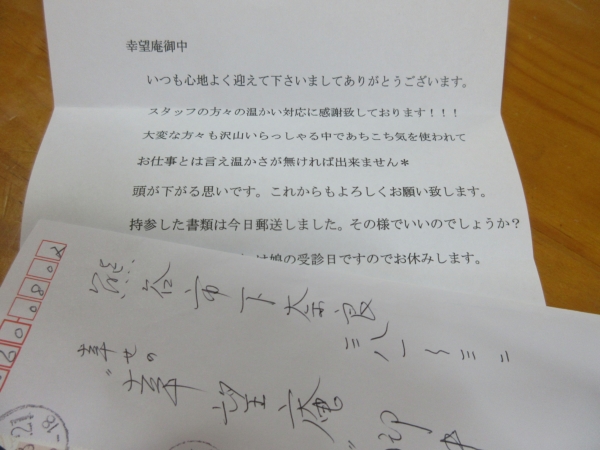 幸望庵御中
いつも心地よく迎えて下さいましてありがとうございます。
スタッフの方々の温かい対応に感謝致しております！！！
大変な方々も沢山いらっしゃる中であちこち気を使われて
お仕事とは言え温かさが無ければ出来ません＊
頭が下がる思いです。これからもよろしくお願い致します。
持参した書類は今日郵送しました。その様でいいのでしょうか？
は娘の受診日ですのでお休みします。
熊谷市下奈良
幸せの
"幸望庵"御中